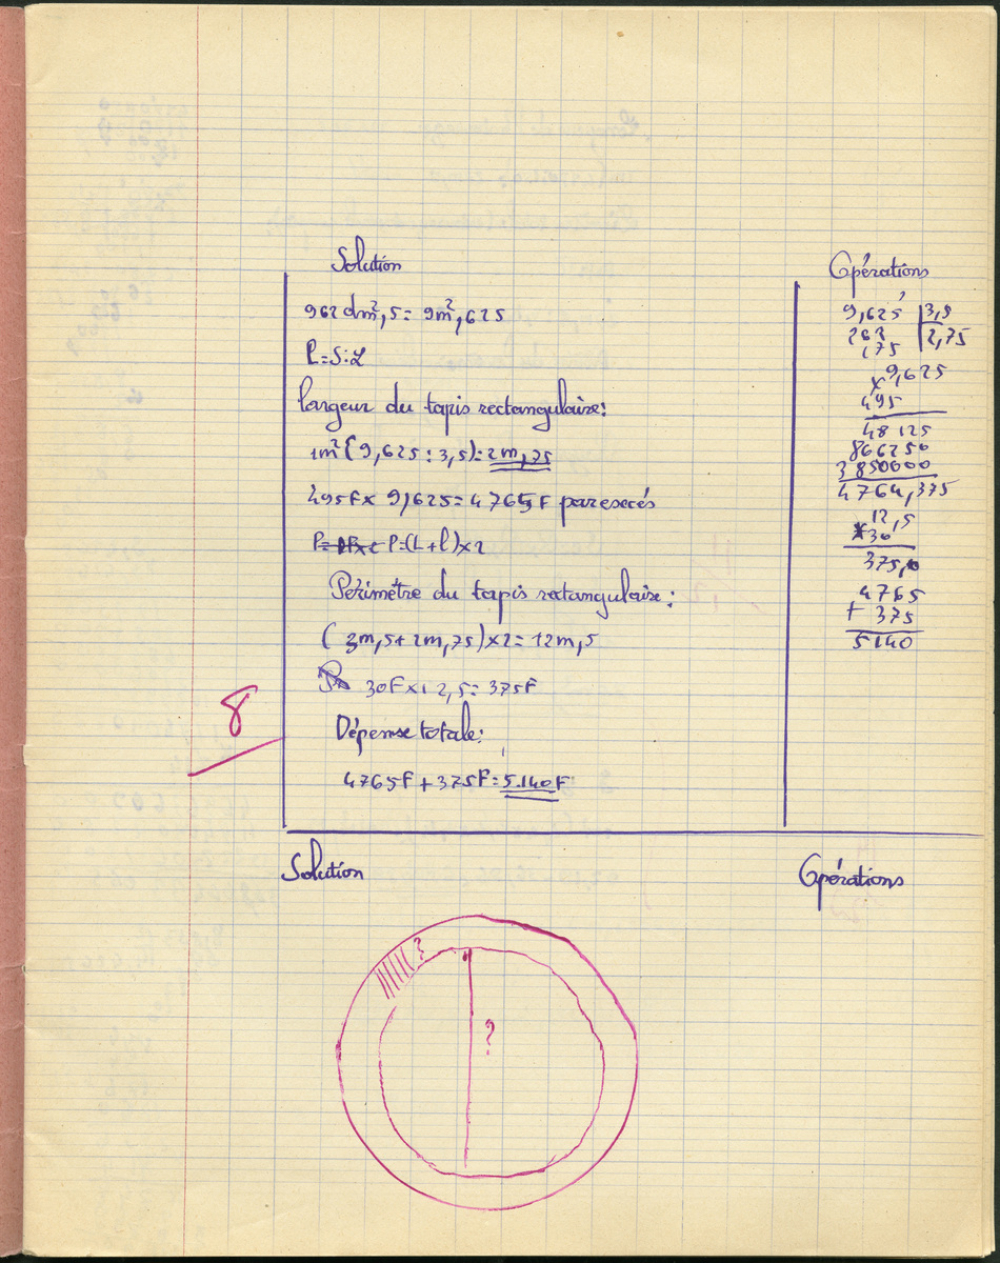 Solution
962 dm²,5 = 9m²,625
l = S : L
largeur du tapis rectangulaire :
1m² (9,625 : 3,5) = 2m,75
495F x 9,625 = 4765F par excès
P = l = P = (L + l) x 2
Périmètre du tapis rectangulaire :
(3m,5 + 2m,75) x 2 = 12m,5
30F x 12,5 = 375F
Dépense totale :
4765F + 375F = 5.140F
8
Opérations
9,625 | 3,5
262 | 2,75
175
9,625
x 495
48125
866250
3850000
4764,375
12,5
x 30
375,0
4765
+ 375
5140
Solution
Opérations
?
?